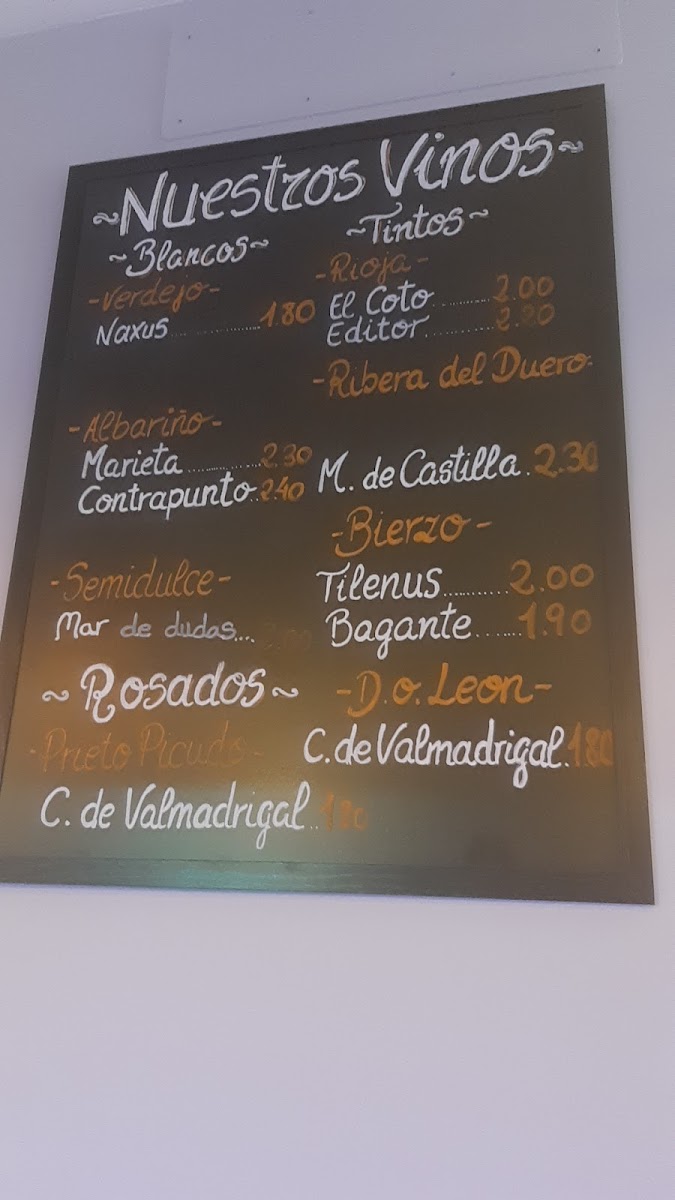 ~Nuestros Vinos~
~Blancos~
-Verdejo-
Naxus....................1.80
-Albariño-
Marieta..............2.30
Contrapunto..2.40
-Semidulce-
Mar de dudas....
~Rosados~
-Prieto Picudo-
C. de Valmadrigal..1.80
~Tintos~
-Rioja-
El Coto............2.00
Editor............
-Ribera del Duero-
M. de Castilla.2.30
-Bierzo-
Tilenus............2.00
Bagante.......1.90
-D.o. Leon-
C. de Valmadrigal.1.80